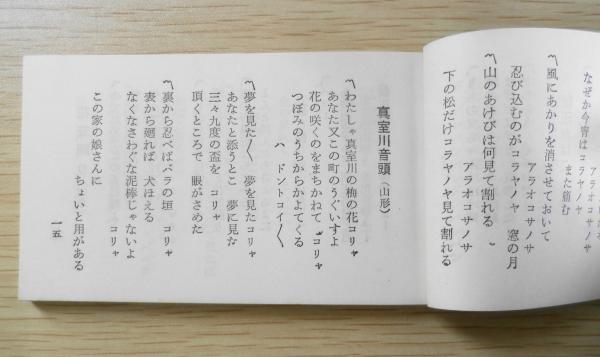 なぜか今宵はコラヤノヤ
アラオコサノサ
また痛む
アラオコサノサ
〽風にあかりを消させておいて
アラオコサノサ
忍び込むのがコラヤノヤ 窓の月
アラオコサノサ
〽山のあけびは何見て割れる
アラオコサノサ
下の松だけコラヤノヤ見て割れる
真室川音頭（山形）
〽わたしゃ真室川の梅の花コリャ
あなた又この町のうぐいすよ
花の咲くのをまちかねて コリャ
つぼみのうちからかよてくる
ハ ドントコイ〳〵
〽夢を見た〳〵 夢を見たコリャ
あなたと添うとこ 夢に見た
三々九度の盃を コリャ
頂くところで 眼がさめた
〽裏から忍べばバラの垣 コリャ
表から廻れば 犬ほえる
なくなさわぐな泥棒じゃないよ
コリャ
この家の娘さんに
ちょいと用がある
一五